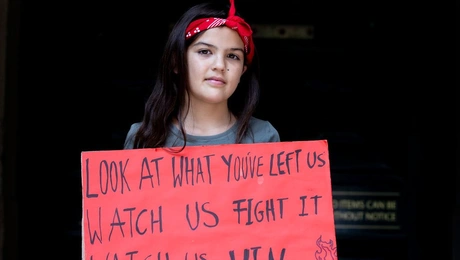 LOOK AT WHAT YOU'VE LEFT US
WATCH US FIGHT IT
WATCH US WIN
D ITEMS CAN BE
WITHOUT NOTICE